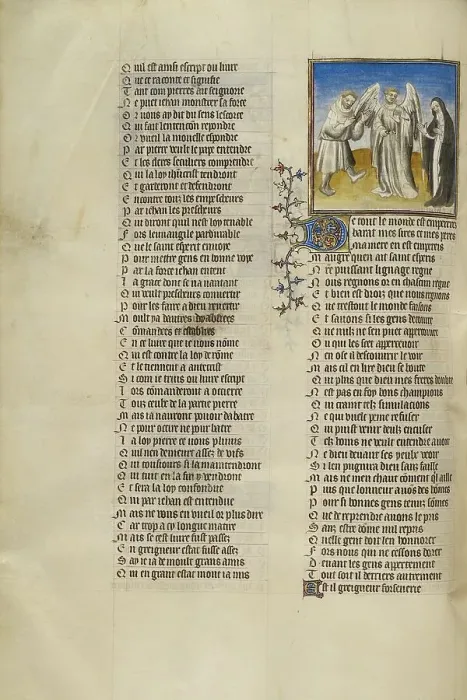 Quil est ainsi escript ou livre
Que ce raconte et signifie
Tant com pierres ait seignorie
Ne puet iehan monstrer sa force
Or vous ay dit du sens lescorce
Qui fait lentencion repondre
Or vueil la mouelle espondre
Par pierre veult le pape entendre
Et les clers seculiers comprendre
Qui la loy ihucrist tendront
Et garderont et defendront
Encontre touz les empeescheurs
Par iehan les prescheurs
Qui diront quil nest loy tenable
Fors leuuangile pardurable
Que le saint esperit enuoye
Pour mettre gens en bonne voye
Par la force iehan entent
La grace dont se va uantant
Qui veult pescheurs conuertir
Pour les faire a dieu
Moult ya dautres dyablies
Commandees et establies
En ce liure que ie vous nomme
Qui est contre la loy de romme
Et se tiennent a antecrist
Si com ie truis ou liure escript
Lors commanderont a occirre
Touz ceulx de la partie pierre
Mais ia nauront pouoir dabatre
Ne pour occirre ne pour batre
La loy pierre ce vous pleuuis
Quil nen demeure assez de vifs
Qui tousiours si la maintendront
Que tuit en la fin y vendront
Et sera la loy confondue
Qui par iehan est entendue
Mais ne vous en vueil or plus dire
Car trop a cy longue matire
Mais se cest liure fust passez
En greigneur estat fusse assez
Say ie ia de moult grans amis
Qui en grant estat mont ia mis
De tout le monde est empereris
Barat mes sires et mes peres
Ma mere en est empereris
Maugre quen ait saint esperis
Nre puissant lignage regne
Nous regnons or en chascun regne
Et bien est doit que nous regnons
Que trestout le monde
Et sauons si les gens deceuoir
Que nulz ne sen puet apperceuoir
Ou qui les scet apperceuoir
Nen ose a descouurir le voir
Mais cil en lire dieu se boute
Qui plus que dieu mes freres doubte
Nest pas en foy bons champions
Qui craint telz simulacions
Ne qui veult peine refuser
Qui puist venir deulz encuser
Telz homs ne veult entendre a voir
Ne dieu deuant ses yeulx veoir
Si len pugnira dieu sanz faille
Mais ne men chaut comment quil aille
Puis que lonneur auons des hommes
Pour si bonnes gens tenuz sommes
Que de reprendre auons le pris
Sanz estre domme nul repris
Quelle gent doit len honnorer
Fors nous qui ne cessons dorer
Deuant les gens appertement
Tout soit il derriers autrement
Est il greigneur forsenerie